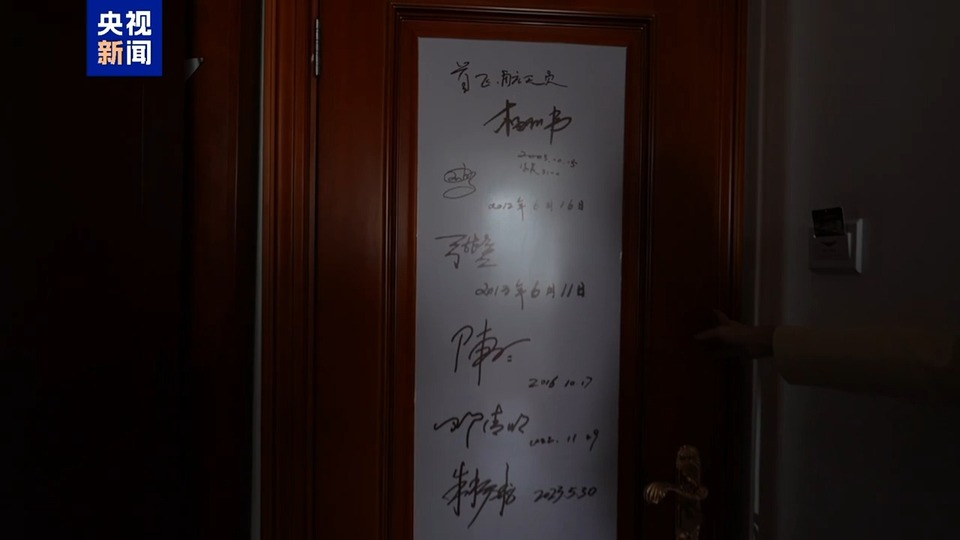 央视
新闻
首飞航天员
杨利伟
2003.10.15
2012年6月16日
2013年6月11日
陈冬
2016.10.17
邓清明
2022.11.29
朱杨柱 2023.5.30